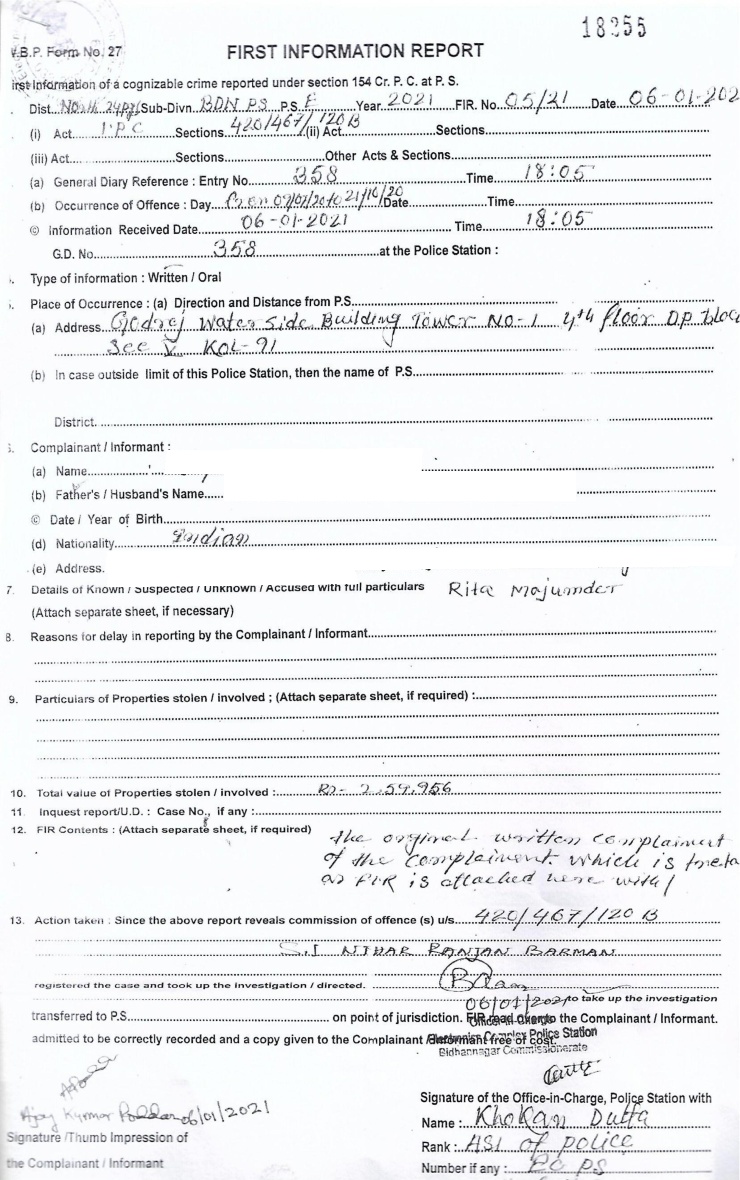 18255
W.B.P. Form No. 27
FIRST INFORMATION REPORT
irst Information of a cognizable crime reported under section 154 Cr. P. C. at P. S.
Dist. North 24 Pgs Sub-Divn. BDN PS P.S. E Year 2021 FIR. No. 05/21 Date 06-01-202
(i) Act I.P.C Sections 420/467/120B (ii) Act Sections
(iii) Act Sections Other Acts & Sections
(a) General Diary Reference : Entry No. 358 Time 18:05
(b) Occurrence of Offence : Day 21/10/20 Date Time
© Information Received Date 06-01-2021 Time 18:05
G.D. No. 358 at the Police Station :
Type of information : Written / Oral
Place of Occurrence : (a) Direction and Distance from P.S.
(a) Address Godrej Water Side Building Tower No-1 4th floor DP bloc
Sec V KOL-91
(b) In case outside limit of this Police Station, then the name of P.S.
District.
Complainant / Informant :
(a) Name
(b) Father's / Husband's Name
© Date / Year of Birth
(d) Nationality Indian
(e) Address.
7. Details of Known / Suspected / Unknown / Accused with full particulars Rita Majumder
(Attach separate sheet, if necessary)
8. Reasons for delay in reporting by the Complainant / Informant
9. Particulars of Properties stolen / involved ; (Attach separate sheet, if required) :
10. Total value of Properties stolen / involved : Rs- 2,59,956
11. Inquest report/U.D. : Case No., if any :
12. FIR Contents : (Attach separate sheet, if required) The orginal written complainent
of the complainent which is treta
as FIR is attached here with/
13. Action taken : Since the above report reveals commission of offence (s) u/s 420/467/120 B
S.I NIHAR RANJAN BARMAN
registered the case and took up the investigation / directed.
06/01/2021 to take up the investigation
transferred to P.S. on point of jurisdiction. FIR read over to the Complainant / Informant.
Officer-in-Charge
admitted to be correctly recorded and a copy given to the Complainant / Informant free of cost.
Electronics Complex Police Station
Bidhannagar Commissionerate
Signature of the Office-in-Charge, Police Station with
Ajay Kumar Poddar 06/01/2021
Name : Khokan Dutta
Signature /Thumb Impression of
Rank : ASI of police
the Complainant / Informant
Number if any : EC PS